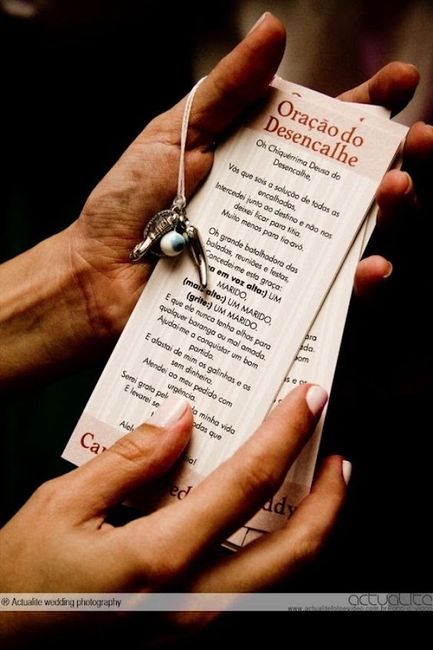 Oração do
Desencalhe
Oh Chiquérrima Deusa do
Desencalhe,
Vós que sois a solução de todas as
encalhadas,
Intercedei junto ao destino e não nos
deixei ficar para titia.
Muito menos para tia-avó.
Oh grande batalhadora das
baladas, reuniões e festas,
concedei-me esta graça:
em voz alta:) UM
MARIDO,
(mais alto:) UM MARIDO,
(grite:) UM MARIDO.
E que ele nunca tenha olhos para
qualquer baranga ou mal amada.
Ajudai-me a conquistar um bom
partido.
E afastai de mim os galinhas e os
sem dinheiro.
Atendei ao meu pedido com
urgência.
Serei grata pela minha vida
E levarei se todas que
® Actualite wedding photography
actualite